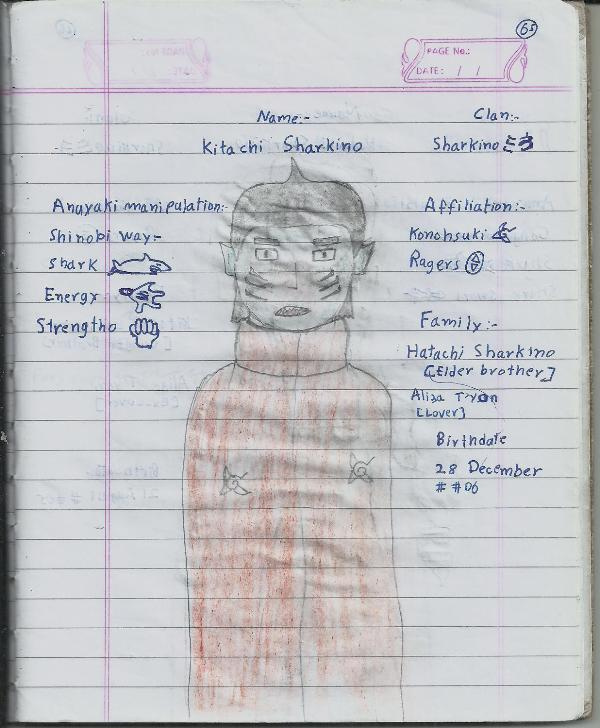 65
PAGE No.:
DATE: / /
Name:-
Kitachi Sharkino
Clan:-
Sharkino
Anayaki manipulation:-
Shinobi way:-
Shark
Energy
Strengtho
Affiliation:-
Konohsuki
Ragers
Family:-
Hatachi Sharkino
[Elder brother]
Alisa
[Lover]
Birthdate
28 December
# #06